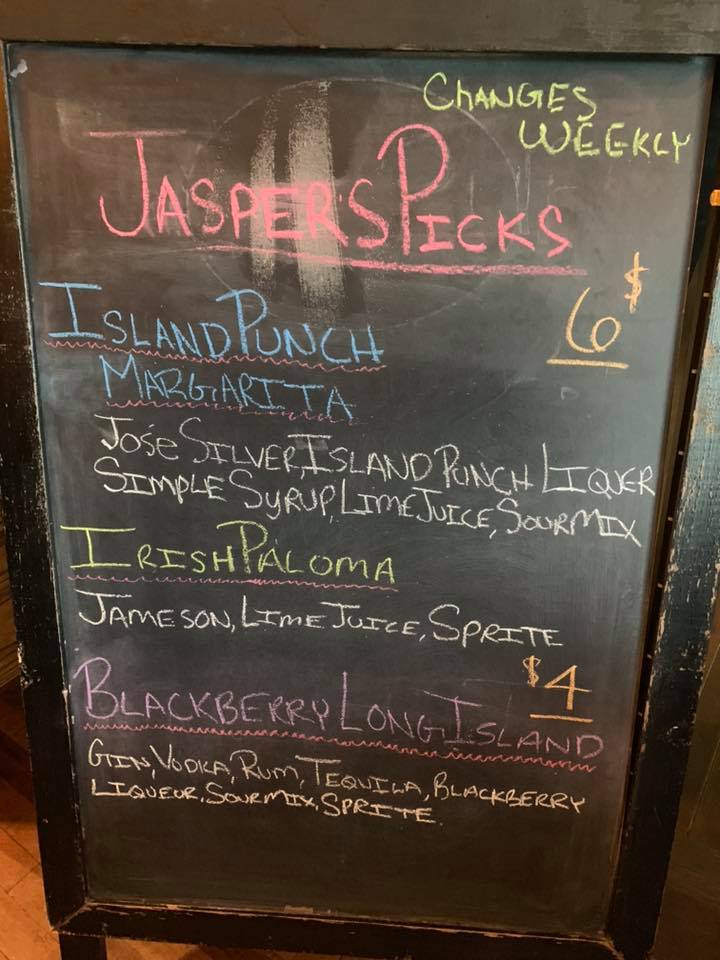 CHANGES
WEEKLY
JASPER'S PICKS
6$
ISLAND PUNCH
MARGARITA
JOSE SILVER, ISLAND PUNCH LIQUER
SIMPLE SYRUP, LIME JUICE, SOUR MIX
IRISH PALOMA
JAMESON, LIME JUICE, SPRITE
$4
BLACKBERRY LONG ISLAND
GIN, VODKA, RUM, TEQUILA, BLACKBERRY
LIQUEUR, SOUR MIX, SPRITE